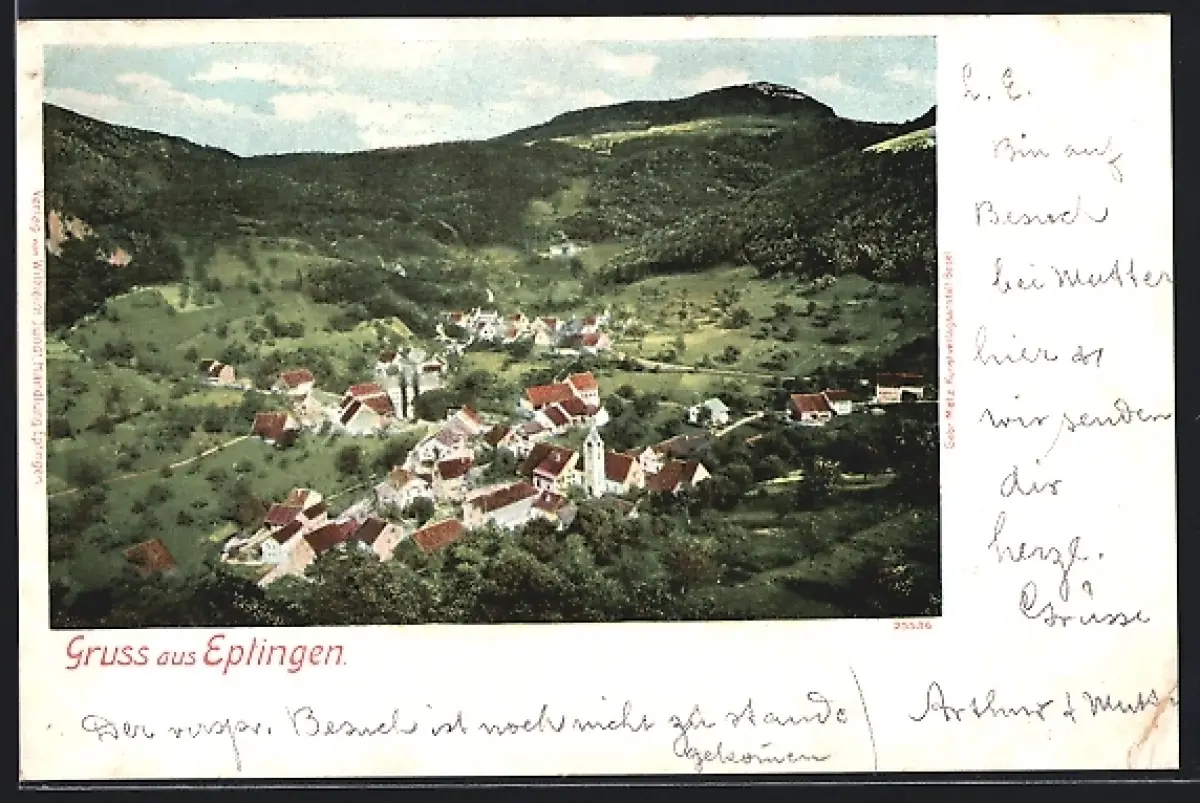 L. E.
Bin auf
Besuch
bei Mutter
hier &
wir senden
dir
herzl.
Grüsse
Arthur & Mutt
Der verspr. Besuch ist noch nicht zu stande
gekom̄en
Gruss aus Eplingen.
25536
Verlag von Wilhelm Handlung Eplingen.
Gebr. Metz, Kunstverlagsanstalt Basel